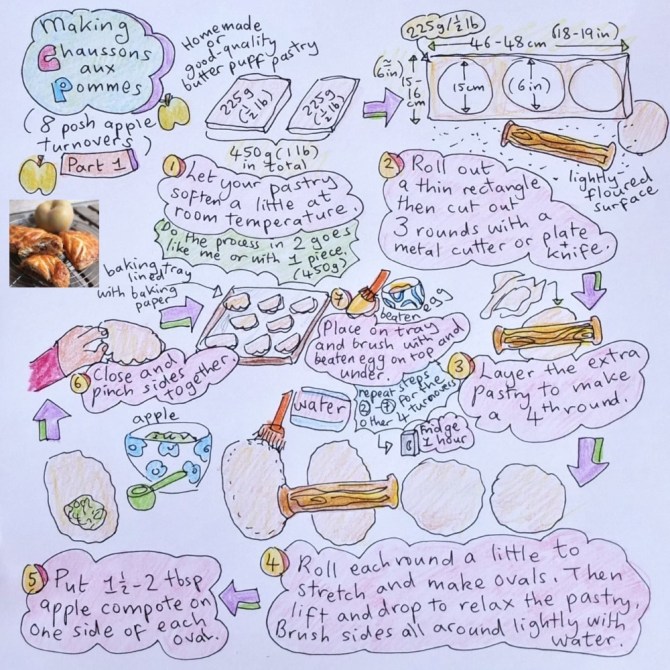 Making
Chaussons
aux
Pommes
(8 posh apple
turnovers)
Part 1
Homemade
or
good-quality
butter puff pastry
225g
(½ lb)
225g
(½ lb)
450g (1 lb)
in total
1
Let your pastry
soften a little at
room temperature.
Do the process in 2 goes
like me or with 1 piece.
(450g)
225g/½ lb
46-48cm (18-19in)
(≈
6in)
15-
16
cm
15cm
(6in)
lightly-
floured
surface
2 Roll out
a thin rectangle
then cut out
3 rounds with a
metal cutter or plate
+
knife.
3
Layer the extra
pastry to make
a 4th round.
4
Roll each round a little to
stretch and make ovals. Then
lift and drop to relax the pastry.
Brush sides all around lightly with
water.
water
apple
5
Put 1½-2 tbsp
apple compote on
one side of each
oval.
6
Close and
pinch sides
together.
baking tray
lined
with baking
paper
7
beaten egg
Place on tray
and brush with
beaten egg on top and
under.
repeat steps
2-7 for the
other 4 turnovers
Fridge
1 hour